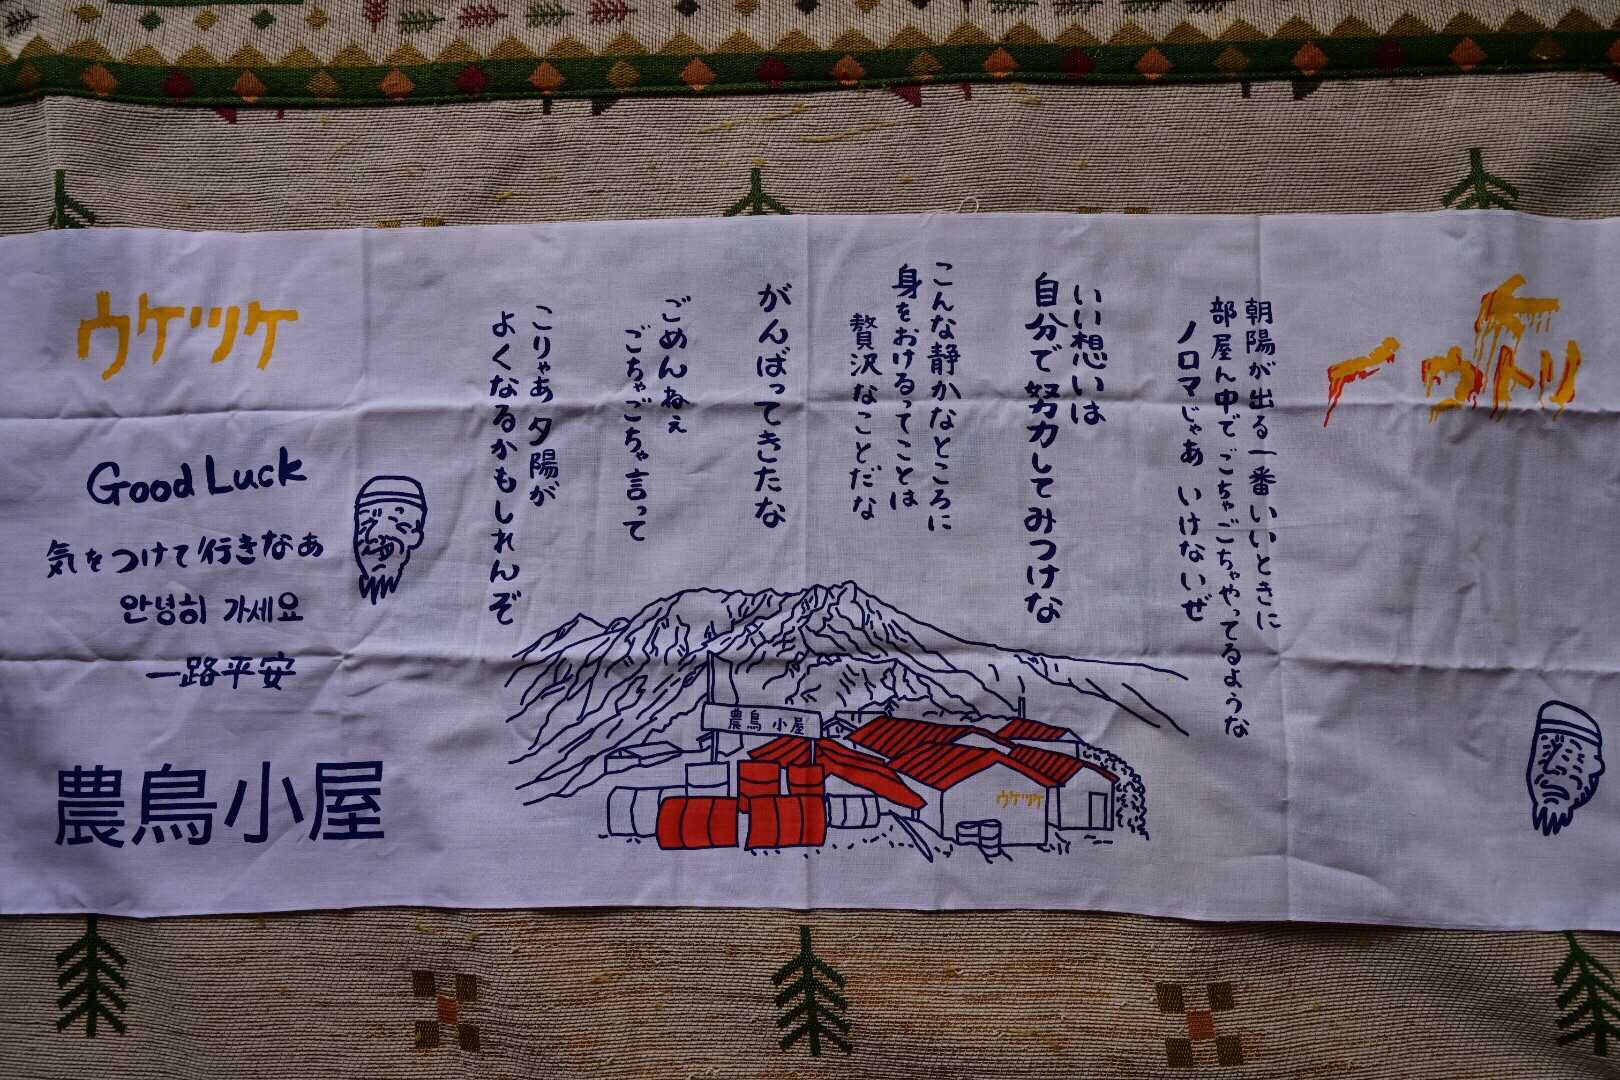 ウトリ
朝陽が出る一番いいときに
部屋ん中でごちゃごちゃやってるような
ノロマじゃあ いけないぜ
いい想いは
自分で努力してみつけな
こんな静かなところに
身をおけるってことは
贅沢なことだな
がんばってきたな
ごめんねぇ
ごちゃごちゃ言って
こりゃあ夕陽が
よくなるかもしれんぞ
農鳥小屋
ウケツケ
ウケツケ
Good Luck
気をつけて行きなぁ
안녕히 가세요
一路平安
農鳥小屋